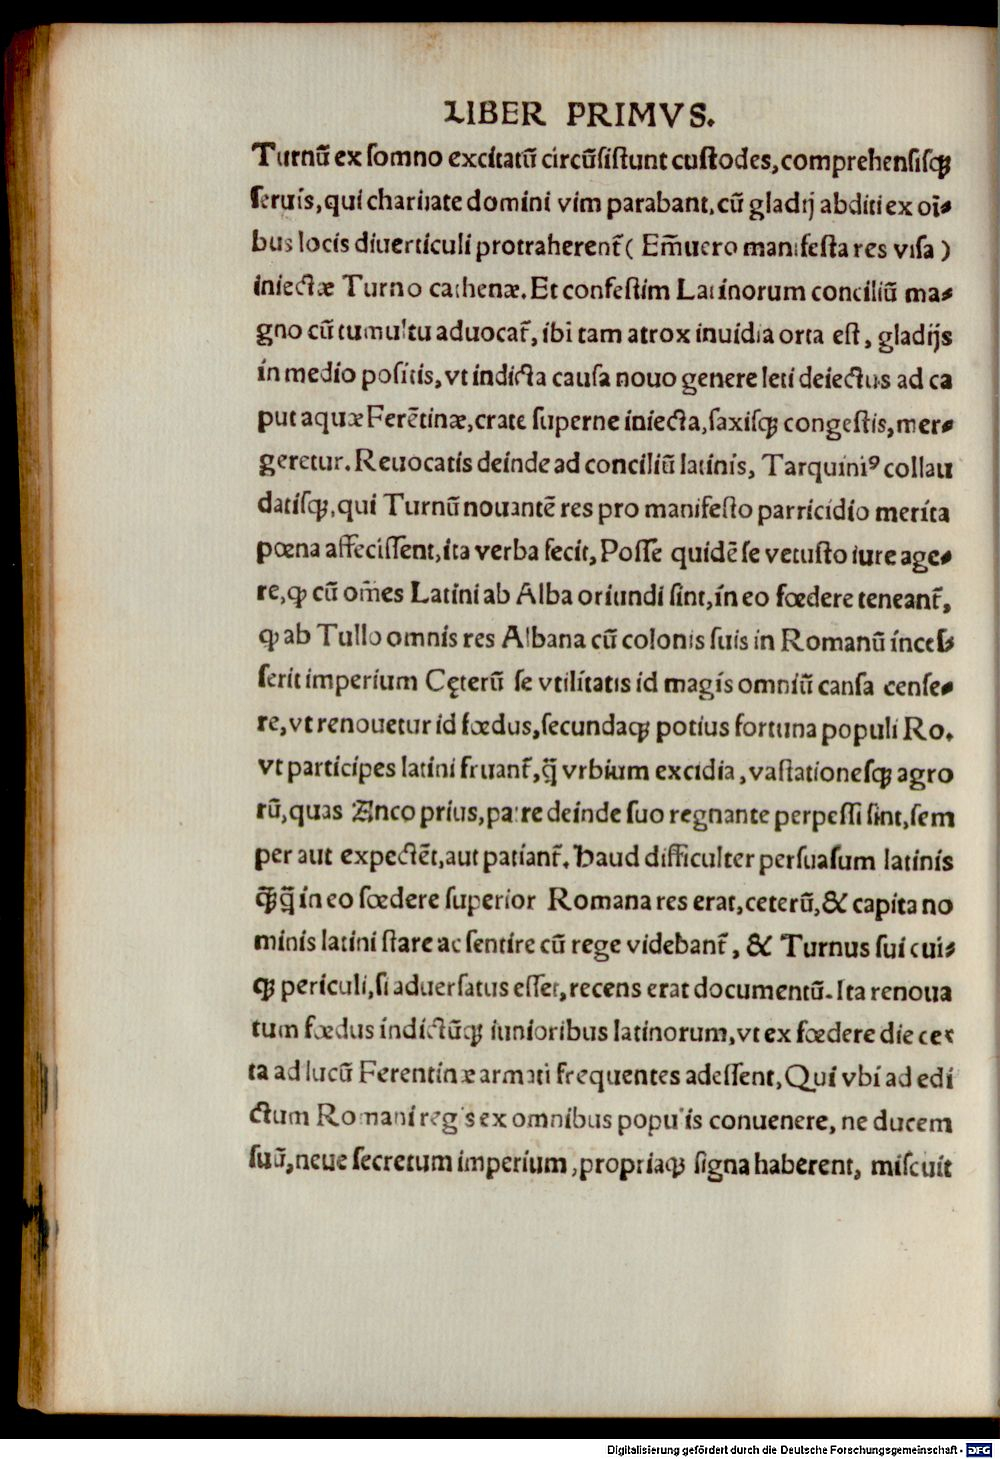 LIBER PRIMVS.
Turnũ ex ſomno excitatũ circũſiſtunt cuſtodes, comprehenſiſq̃
ſeruis, qui charitate domini vim parabant, cũ gladij abditi ex oĩ-
bus locis diuerticuli protraherent᷑ ( Em̃uero manifeſta res viſa )
iniectæ Turno cathenæ. Et confeſtim Latinorum conciliũ ma-
gno cũ tumultu aduocat᷑, ibi tam atrox inuidia orta eſt, gladijs
in medio poſitis, vt indicta cauſa nouo genere leti deiectus ad ca
put aquæ Ferẽtinæ, crate ſuperne iniecta, ſaxiſq̃ congeſtis, mer-
geretur. Reuocatis deinde ad conciliũ latinis, Tarquiniꝰ collau
datiſq̃, qui Turnũ nouantẽ res pro manifeſto parricidio merita
pœna affeciſſent, ita verba fecit, Poſſe quidẽ ſe vetuſto iure age-
re, ꝙ cũ om̃es Latini ab Alba oriundi ſint, in eo fœdere teneant᷑,
ꝙ ab Tullo omnis res Albana cũ colonis ſuis in Romanũ inceſ-
ſerit imperium Cęterũ ſe vtilitatis id magis omniũ canſa cenſe-
re, vt renouetur id fœdus, ſecundaq̃ potius fortuna populi Ro.
vt participes latini fruant᷑, q̃ vrbium excidia, vaſtationeſq̃ agro
rũ, quas Anco prius, patre deinde ſuo regnante perpeſſi ſint, ſem
per aut expectẽt, aut patiant᷑. Haud difficulter perſuaſum latinis
q̃q̃ in eo fœdere ſuperior Romana res erat, ceterũ, & capita no
minis latini ſtare ac ſentire cũ rege videbant᷑, & Turnus ſui cui-
q̃ periculi, ſi aduerſatus eſſet, recens erat documentũ. Ita renoua
tum fœdus indictũq̃ iunioribus latinorum, vt ex fœdere die cer
ta ad lucũ Ferentinæ armati frequentes adeſſent, Qui vbi ad edi
ctum Romani regis ex omnibus populis conuenere, ne ducem
ſuũ, neue ſecretum imperium, propriaq̃ ſigna haberent, miſcuit
Digitalisierung gefördert durch die Deutsche Forschungsgemeinschaft - DFG